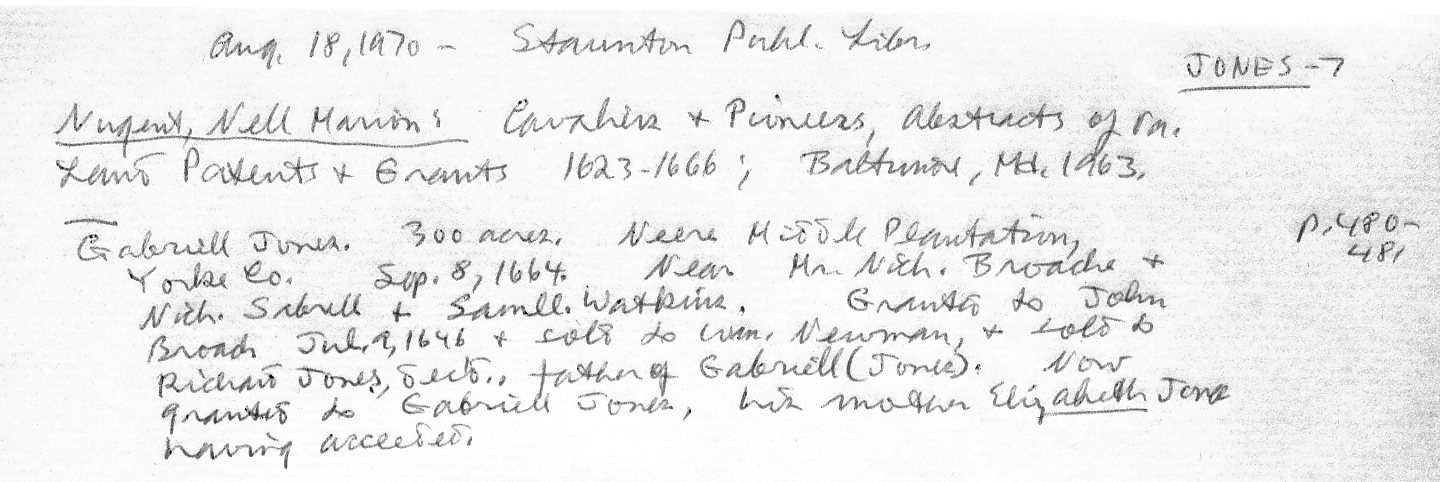 Aug. 18, 1970 - Staunton Publ. Libr.
JONES-7
Nugent, Nell Marion: Cavaliers + Pioneers, Abstracts of Va.
Land Patents + Grants 1623-1666; Baltimore, Md. 1963.
Gabriell Jones. 300 acres. Neere Middle Plantation, p. 480-
Yorke Co. Sep. 8, 1664. Near Mr. Nich. Broache + 481
Nich. Sabrell + Samll. Watkins. Granted to John
Broach Jul. 9, 1646 + sold to Wm. Newman, + sold to
Richard Jones, decd., father of Gabriell (Jones). Now
granted to Gabriell Jones, his mother Elizabeth Jones
having acceeded.